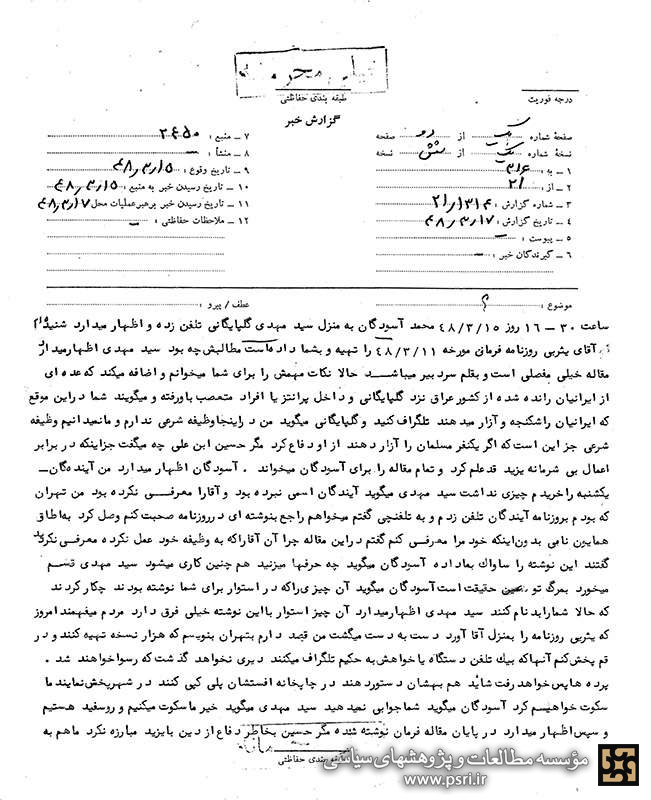 خیلی محرمانه
طبقه بندی حفاظتی
درجه فوریت
گزارش خبر
صفحهٔ شماره یک از دو صفحه
نسخهٔ شماره یک از شش نسخه
۱ ــ به : ۳۱۶
۲ ــ از : ۲۱
۳ ــ شماره گزارش : ۲۱/۱۳۱۴
۴ ــ تاریخ گزارش : ۴۸/۳/۱۷
۵ ــ پیوست : ــ
۶ ــ گیرندگان خبر : ــ
۷ ــ منبع : ۲۶۵۰
۸ ــ منشأ : ــ
۹ ــ تاریخ وقوع : ۴۸/۳/۱۵
۱۰ ــ تاریخ رسیدن خبر به منبع : ۴۸/۳/۱۵
۱۱ ــ تاریخ رسیدن خبر برهبر عملیات محل : ۴۸/۳/۱۷
۱۲ ــ ملاحظات حفاظتی : ــ
موضوع : ؟
عطف / پیرو :
ساعت ۳۰ – ۱۶ روز ۴۸/۳/۱۵ محمد آسودگان به منزل سید مهدی گلپایگانی تلفن زده و اظهار میدارد شنیده‌ام
آقای یثربی روزنامه فرمان مورخه ۴۸/۳/۱۱ را تهیه و بشما داده است مطالبش چه بود سید مهدی اظهار میدارد
مقاله خیلی مفصلی است و بقلم سردبیر میباشد حالا نکات مهمش را برای شما میخوانم و اضافه میکند که عده ای
از ایرانیان رانده شده از کشور عراق نزد گلپایگانی و داخل پرانتز یا افراد متعصب باو رفته و میگویند شما در این موقع
که ایرانیان را شکنجه و آزار میدهند تلگراف کنید و گلپایگانی میگوید من در اینجا وظیفه شرعی ندارم و مانمیدانیم وظیفه
شرعی جز این است که اگر یکنفر مسلمان را آزار دهند از او دفاع کرد مگر حسین ابن علی چه میگفت جز اینکه در برابر
اعمال بی شرمانه یزید قد علم کرد و تمام مقاله را برای آسودگان میخواند . آسودگان اظهار میدارد من آیندگان ــ
یکشنبه را خریدم چیزی نداشت سید مهدی میگوید آیندگان اسمی نبرده بود و آقارا معرفی نکرده بود من تهران
که بودم بروزنامه آیندگان تلفن زدم و به تلفنچی گفتم میخواهم راجع بنوشته ای در روزنامه صحبت کنم وصل کرد به اطاق
همایون نامی بدون اینکه خودمرا معرفی کنم گفتم در این مقاله چرا آن آقارا که به وظیفه خود عمل نکرده معرفی نکردید
گفتند این نوشته را ساواک بما داده آسودگان میگوید چه حرفها میزنید هم چنین کاری میشود سید مهدی قسم
میخورد بمرگ تو حقیقت است آسودگان میگوید آن چیزی را که در استوار برای شما نوشته بودند چکار کردند
که حالا شمارا بدنام کنند سید مهدی اظهار میدارد آن چیز استوار با این نوشته خیلی فرق دارد مردم میفهمند امروز
که یثربی روزنامه را بمنزل آقا آورد دست به دست میگشت من قصد دارم بتهران بنویسم که هزار نسخه تهیه کنند و در
قم پخش کنم آنها که بیک تلفن دستگاه یا خواهش به حکیم تلگراف میکنند دیری نخواهد گذشت که رسوا خواهند شد .
پرده ها پس خواهد رفت شاید هم بهشان دستور دهند در چاپخانه افستشان پلی کپی کنند در شهر پخش نمایند ما
سکوت خواهیم کرد آسودگان میگوید شما جوابی نمیدهید سید مهدی میگوید خیر ما سکوت میکنیم و روسفید هستیم
و سپس اظهار میدارد در پایان مقاله فرمان نوشته شده مگر حسین بخاطر دفاع از دین با یزید مبارزه نکرد ما هم به
طبقه بندی حفاظتی
مؤسسه مطالعات و پژوهشهای سیاسی
www.psri.ir